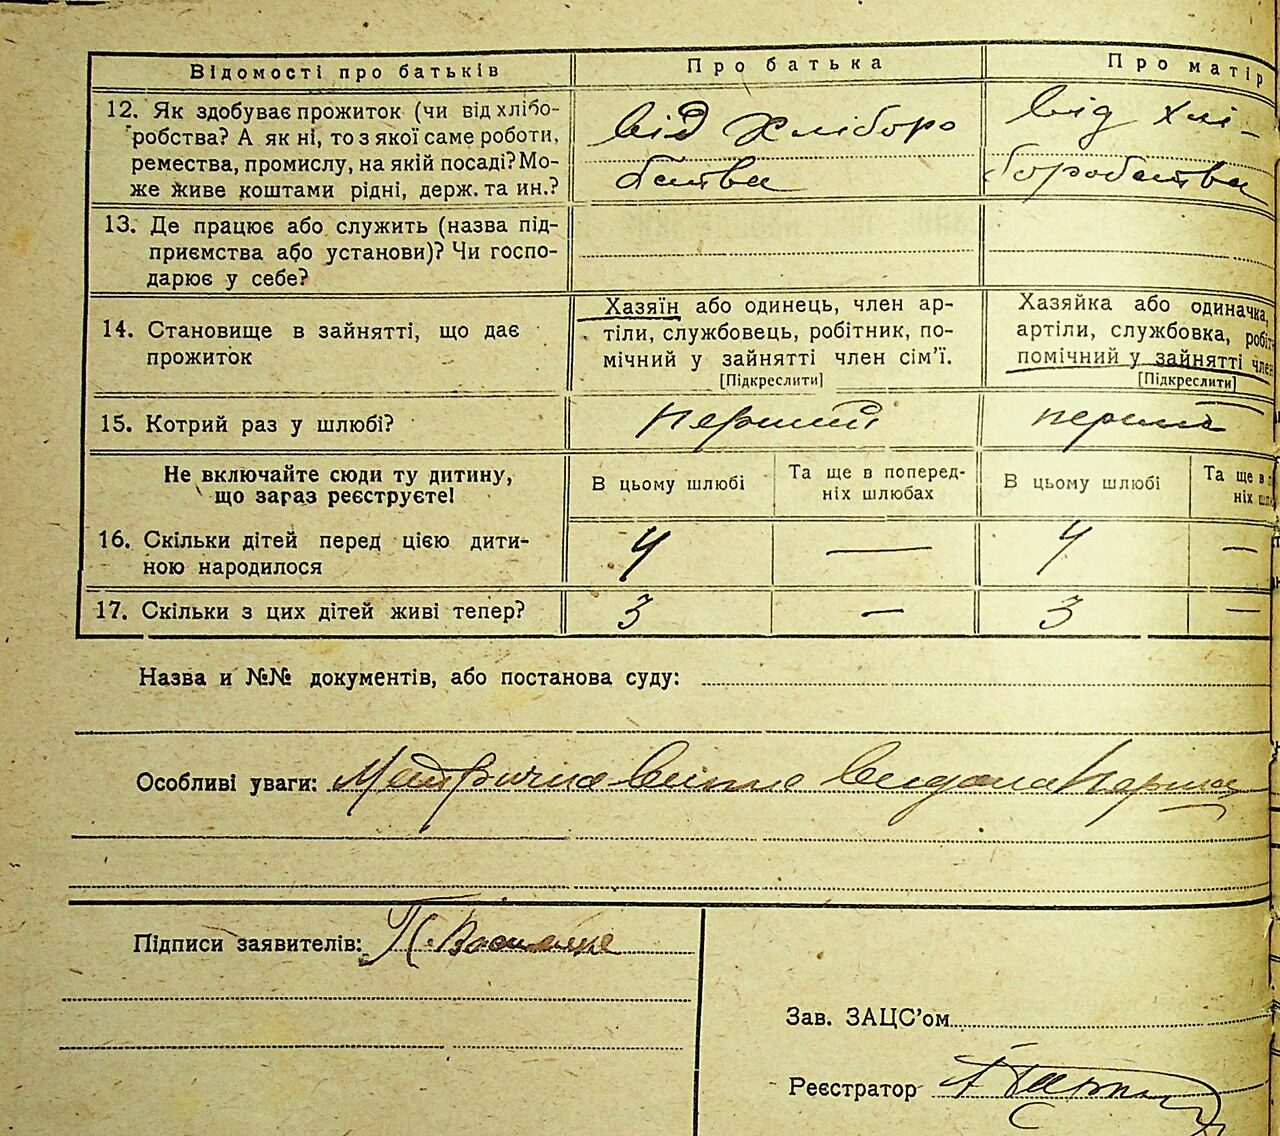 Відомості про батьків Про батька Про матір
12. Як здобуває прожиток (чи від хлібо-
робства? А як ні, то з якої саме роботи,
ремества, промислу, на якій посаді? Мо-
же живе коштами рідні, держ. та ин.?
від хліборо
бства
від хлі-
боробства
13. Де працює або служить (назва під-
приємства або установи)? Чи госпо-
дарює у себе?
14. Становище в зайнятті, що дає
прожиток
Хазяїн або одинець, член ар-
тіли, службовець, робітник, по-
мічний у зайнятті член сім'ї.
[Підкреслити]
Хазяйка або одиначка,
артіли, службовка, робіт
помічний у зайнятті член
[Підкреслити]
15. Котрий раз у шлюбі? перший перший
Не включайте сюди ту дитину,
що зараз реєструєте!
В цьому шлюбі
Та ще в поперед-
ніх шлюбах
В цьому шлюбі
Та ще в
ніх
16. Скільки дітей перед цією дити-
ною народилося
4 — 4 —
17. Скільки з цих дітей живі тепер? 3 — 3 —
Назва и №№ документів, або постанова суду:
Особливі уваги: видана перша
Підписи заявителів:
Зав. ЗАЦС'ом
Реєстратор